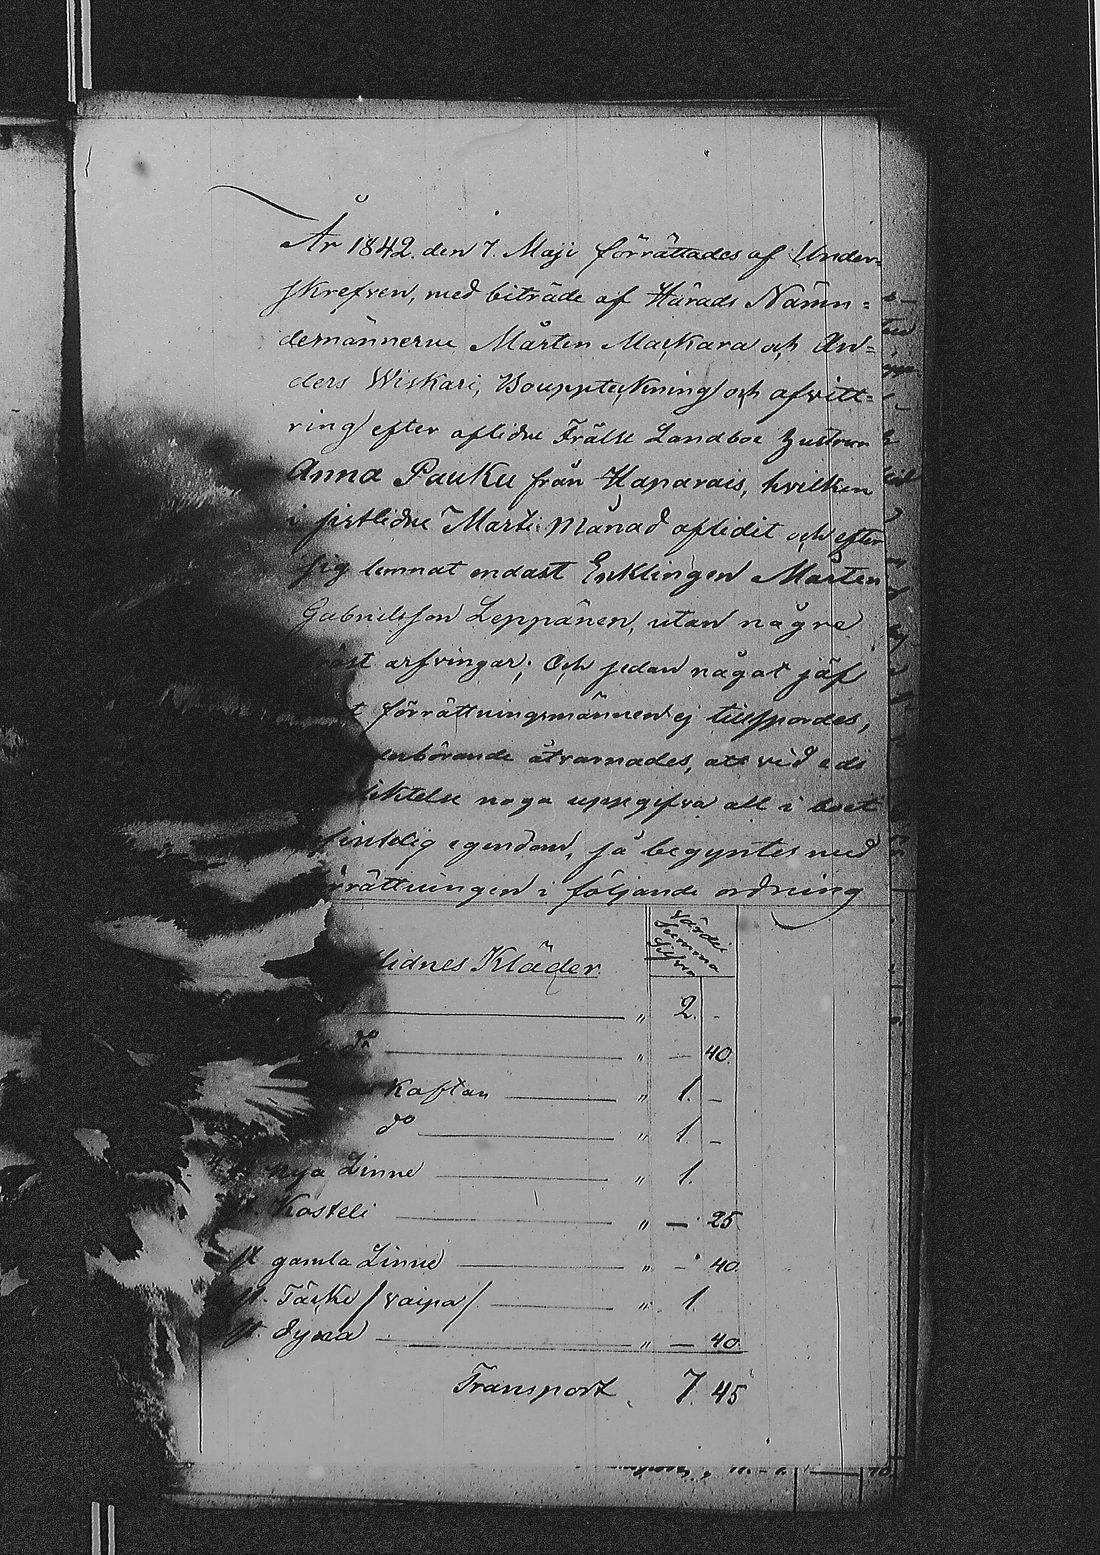 År 1842. den 7. Maji förrättades af Under-
skrefven, med biträde af Härads Nämn=
demännerne Mårten Markara och An=
ders Wiskari, Bouppteckning och afvitt=
ring efter aflidne Frälse Landboe hustrun
Anna Pauku från Haparais, hvilken
i sistlidne Martii Månad aflidit och efter
sig lemnat endast Enklingen Mårten
Gabrielsson Leppänen, utan några
bröst arfvingar; Och sedan något jäf
t förrättningsmännen ej tillspordes,
derbörande åtvarnades, att vid eds
pliktelse noga uppgifva all i boet
befintelig egendom, så begyntes med
förrättningen i följande ordning
Värdie
Summa
Silfver
flidnes Kläder
" 2. -
do " - 40.
Kaftan " 1. -
do " 1. -
nya Linne " 1.
st. Kosteli " - 25
st gamla Linne " - 40.
st. Täcke /vaipa/. " 1.
st. dyna " - 40.
Transport 7. 45